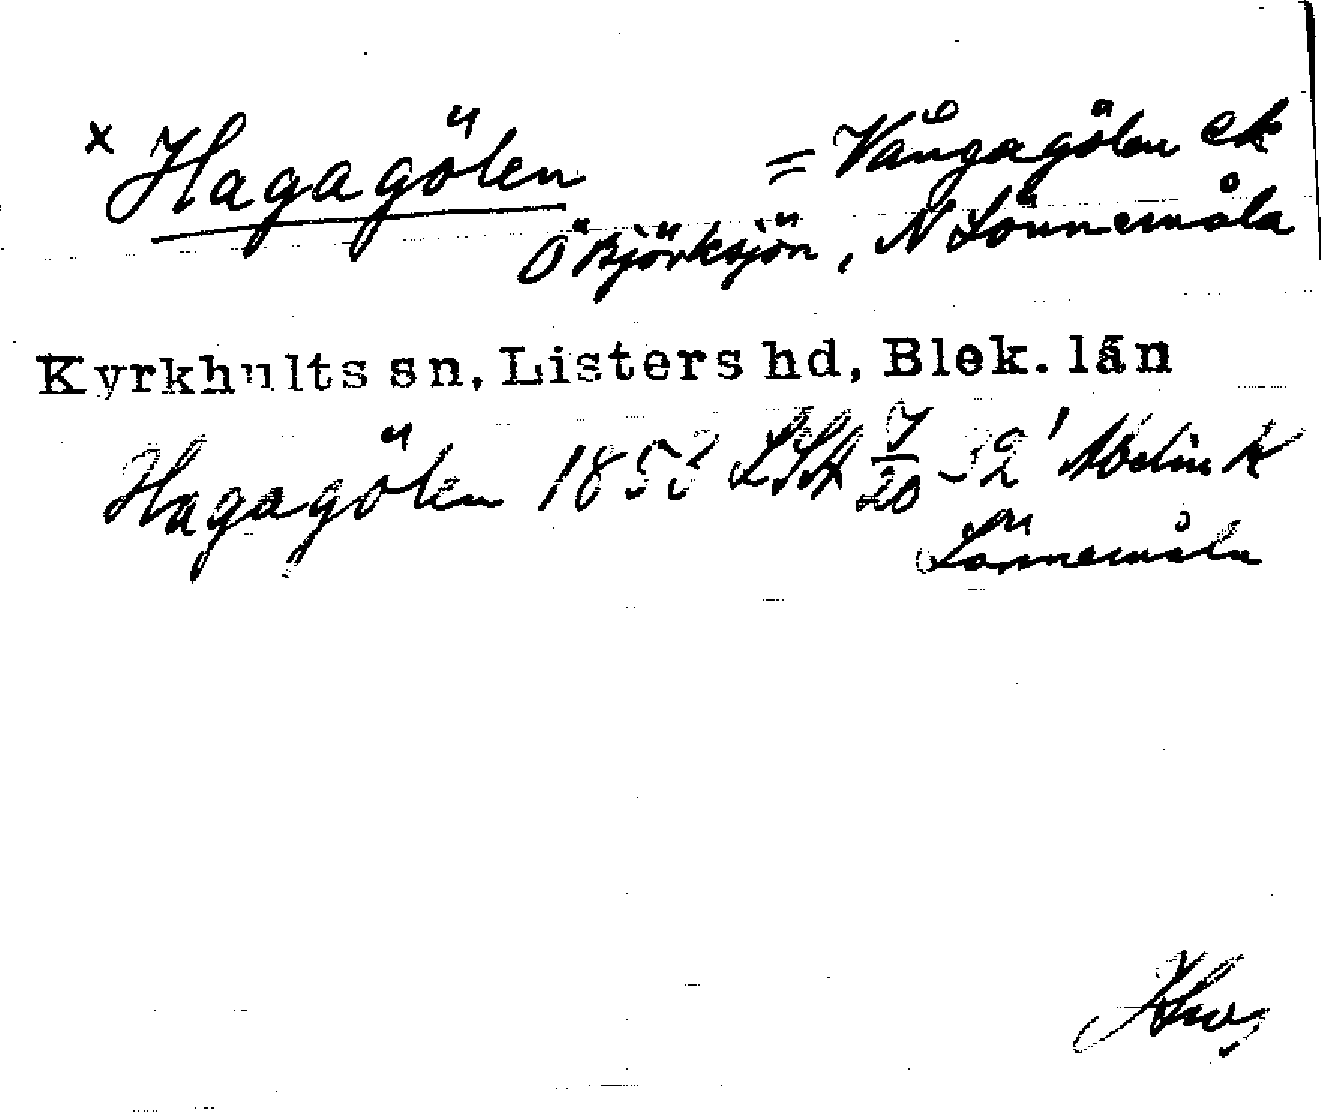 x Hagagölen = Vångagölen ek
Ö Björksjön, N Lönnemåla
Kyrkhults sn, Listers hd, Blek. län
Hagagölen 1853 LSA 7/20 -32
Lönnemåla